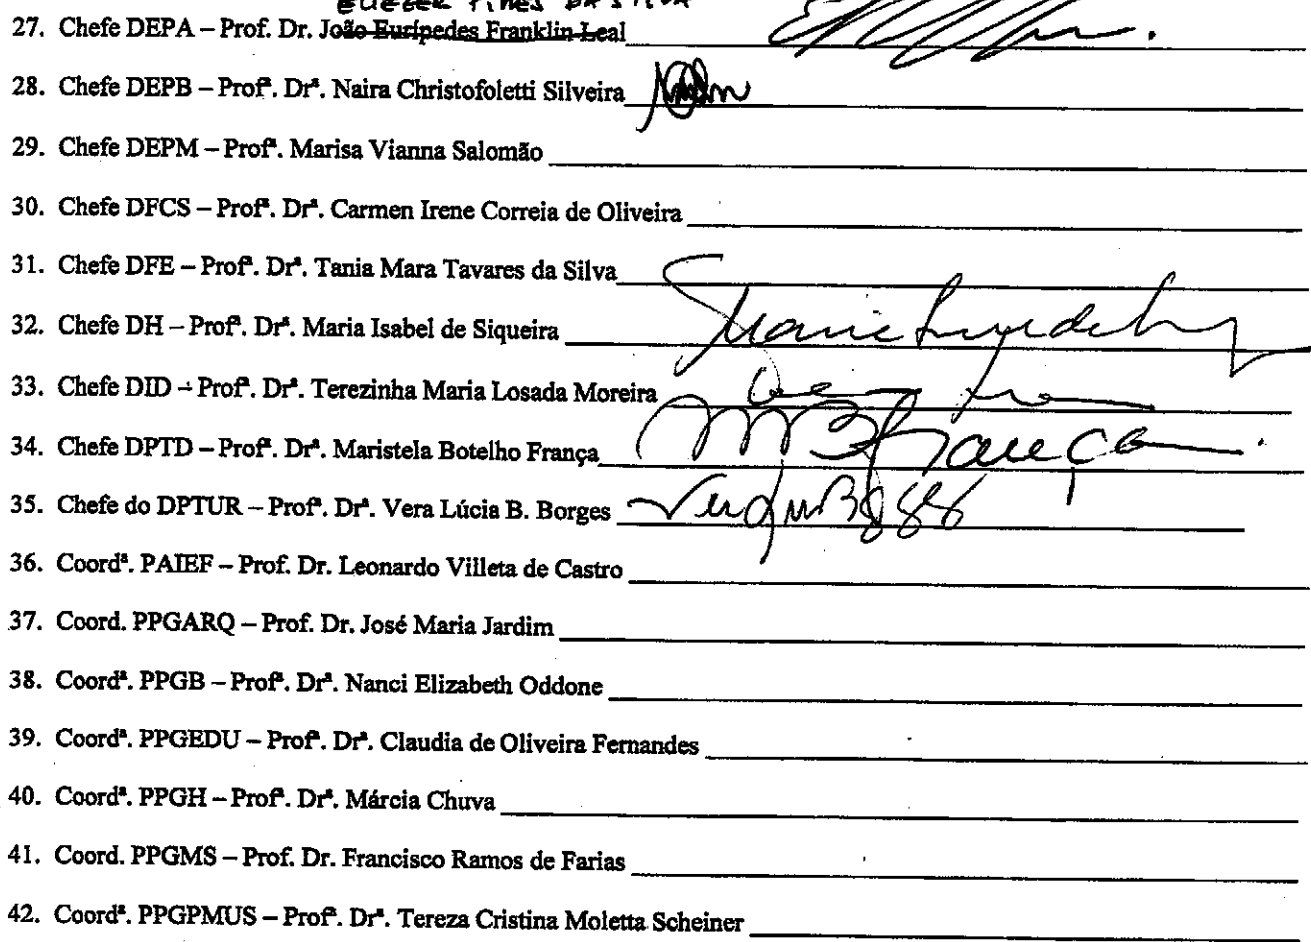 ELIEZER PIRES DA SILVA
27. Chefe DEPA – Prof. Dr. João Eurípedes Franklin Leal
28. Chefe DEPB – Profª. Drª. Naira Christofoletti Silveira
29. Chefe DEPM – Profª. Marisa Vianna Salomão
30. Chefe DFCS – Profª. Drª. Carmen Irene Correia de Oliveira
31. Chefe DFE – Profª. Drª. Tania Mara Tavares da Silva
32. Chefe DH – Profª. Drª. Maria Isabel de Siqueira
33. Chefe DID – Profª. Drª. Terezinha Maria Losada Moreira
34. Chefe DPTD – Profª. Drª. Maristela Botelho França MBFrança
35. Chefe do DPTUR – Profª. Drª. Vera Lúcia B. Borges
36. Coordª. PAIEF – Prof. Dr. Leonardo Villeta de Castro
37. Coord. PPGARQ – Prof. Dr. José Maria Jardim
38. Coordª. PPGB – Profª. Drª. Nanci Elizabeth Oddone
39. Coordª. PPGEDU – Profª. Drª. Claudia de Oliveira Fernandes
40. Coordª. PPGH – Profª. Drª. Márcia Chuva
41. Coord. PPGMS – Prof. Dr. Francisco Ramos de Farias
42. Coordª. PPGPMUS – Profª. Drª. Tereza Cristina Moletta Scheiner